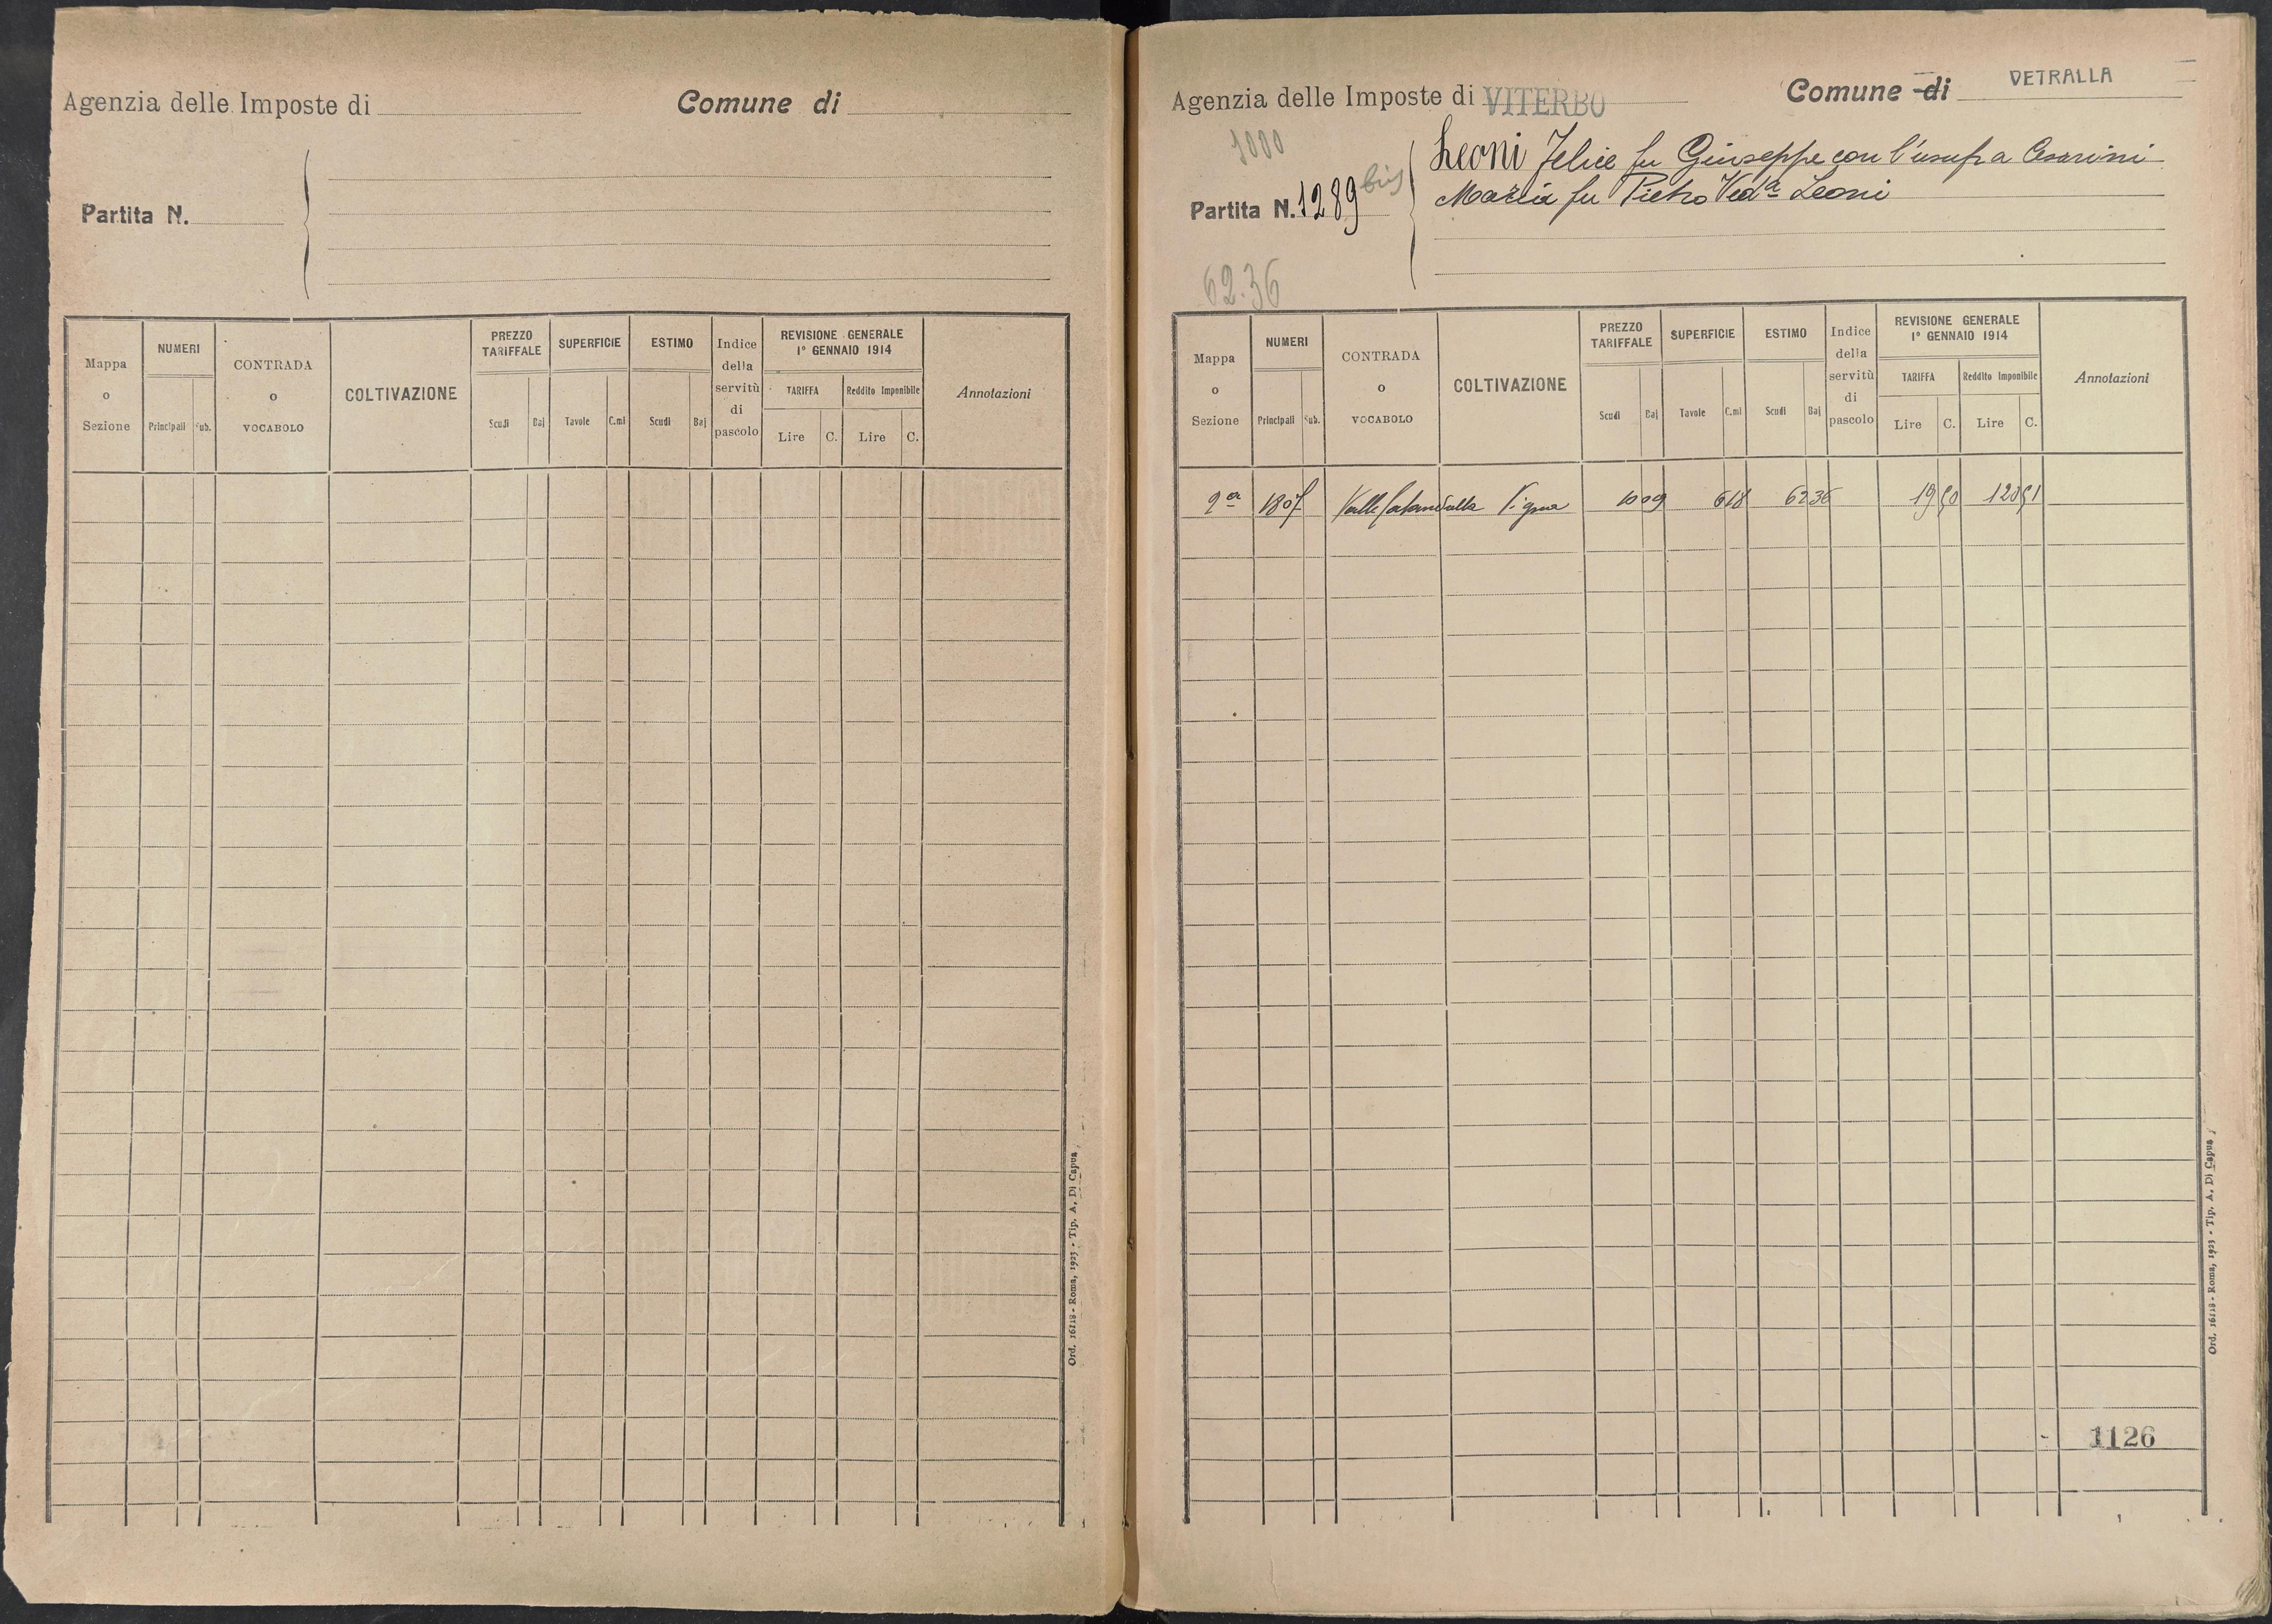 Agenzia delle Imposte di
Comune di
Partita N.
Mappa o Sezione
NUMERI
Principali
Sub.
CONTRADA o VOCABOLO
COLTIVAZIONE
PREZZO TARIFFALE
Scudi
Baj
SUPERFICIE
Tavole
C.mi
ESTIMO
Scudi
Baj
Indice della servitù di pascolo
REVISIONE GENERALE
1° GENNAIO 1914
TARIFFA
Reddito Imponibile
Lire
C.
Lire
C.
Annotazioni
Ord. 16118 - Roma, 1923 - Tip. A. Di Capua
Agenzia delle Imposte di VITERBO
Comune di VETRALLA
1000
Partita N. 1289 bis
Leoni Felice fu Giuseppe con l'usuf. a Cesarini
Maria fu Pietro Ved.a Leoni
62.36
Mappa o Sezione
NUMERI
Principali
Sub.
CONTRADA o VOCABOLO
COLTIVAZIONE
PREZZO TARIFFALE
Scudi
Baj
SUPERFICIE
Tavole
C.mi
ESTIMO
Scudi
Baj
Indice della servitù di pascolo
REVISIONE GENERALE
1° GENNAIO 1914
TARIFFA
Reddito Imponibile
Lire
C.
Lire
C.
Annotazioni
2a 1807 Valle Vigna 10 09 6 18 62 36 19 50 120 51
1126
Ord. 16118 - Roma, 1923 - Tip. A. Di Capua